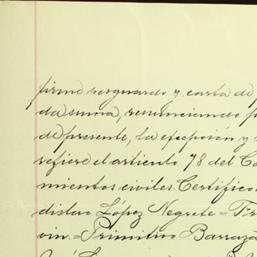 firme resguardo y carta de
da suma, renunciando
de presente, la escepción y
refiere el artículo 78 del Co
mientos civiles. Certifico
dislao López Negrete = Fr
vin. = Primitivo Barraza